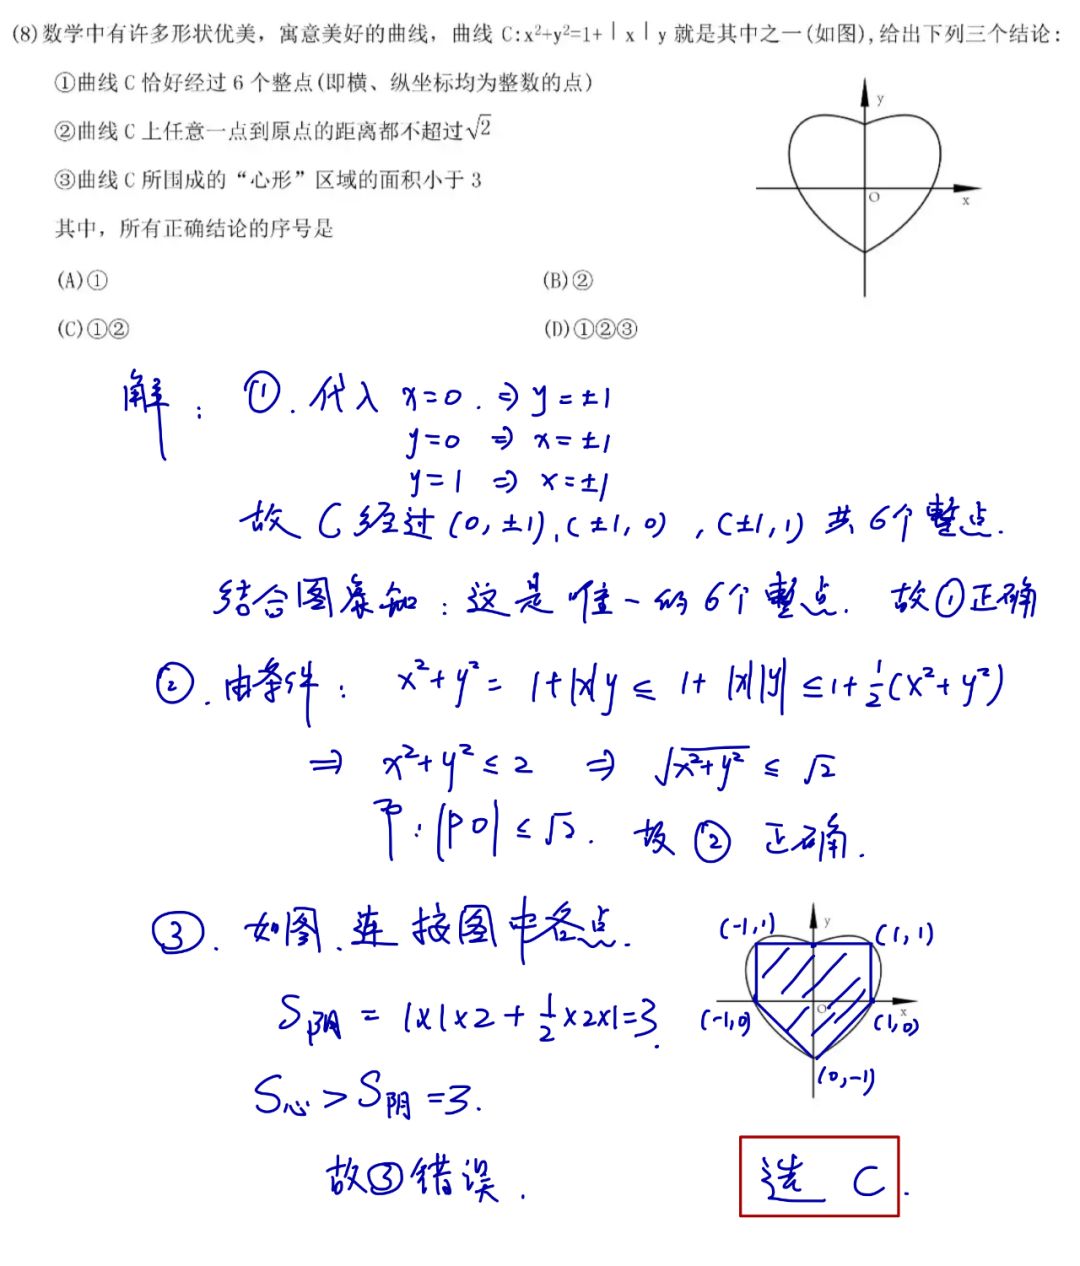 (8)数学中有许多形状优美，寓意美好的曲线，曲线 C:x²+y²=1+|x|y 就是其中之一(如图),给出下列三个结论:
①曲线 C 恰好经过 6 个整点(即横、纵坐标均为整数的点)
②曲线 C 上任意一点到原点的距离都不超过√2
③曲线 C 所围成的“心形”区域的面积小于 3
其中，所有正确结论的序号是
(A)①
(B)②
(C)①②
(D)①②③
y
O
x
解: ①. 代入 x=0. ⇒ y=±1
y=0 ⇒ x=±1
y=1 ⇒ x=±1
故 C经过(0,±1),(±1,0),(±1,1)共6个整点.
结合图象知:这是唯一的6个整点. 故①正确
②.由条件: x²+y²=1+|x|y≤1+|x||y|≤1+½(x²+y²)
⇒ x²+y²≤2 ⇒ √x²+y²≤√2
即:|PO|≤√2. 故②正确.
③.如图.连接图中各点.
S阴=1×1×2+½×2×1=3.
S心>S阴=3.
故③错误.
(-1,1)
y
(1,1)
(-1,0)
O
x
(1,0)
(0,-1)
选 C.